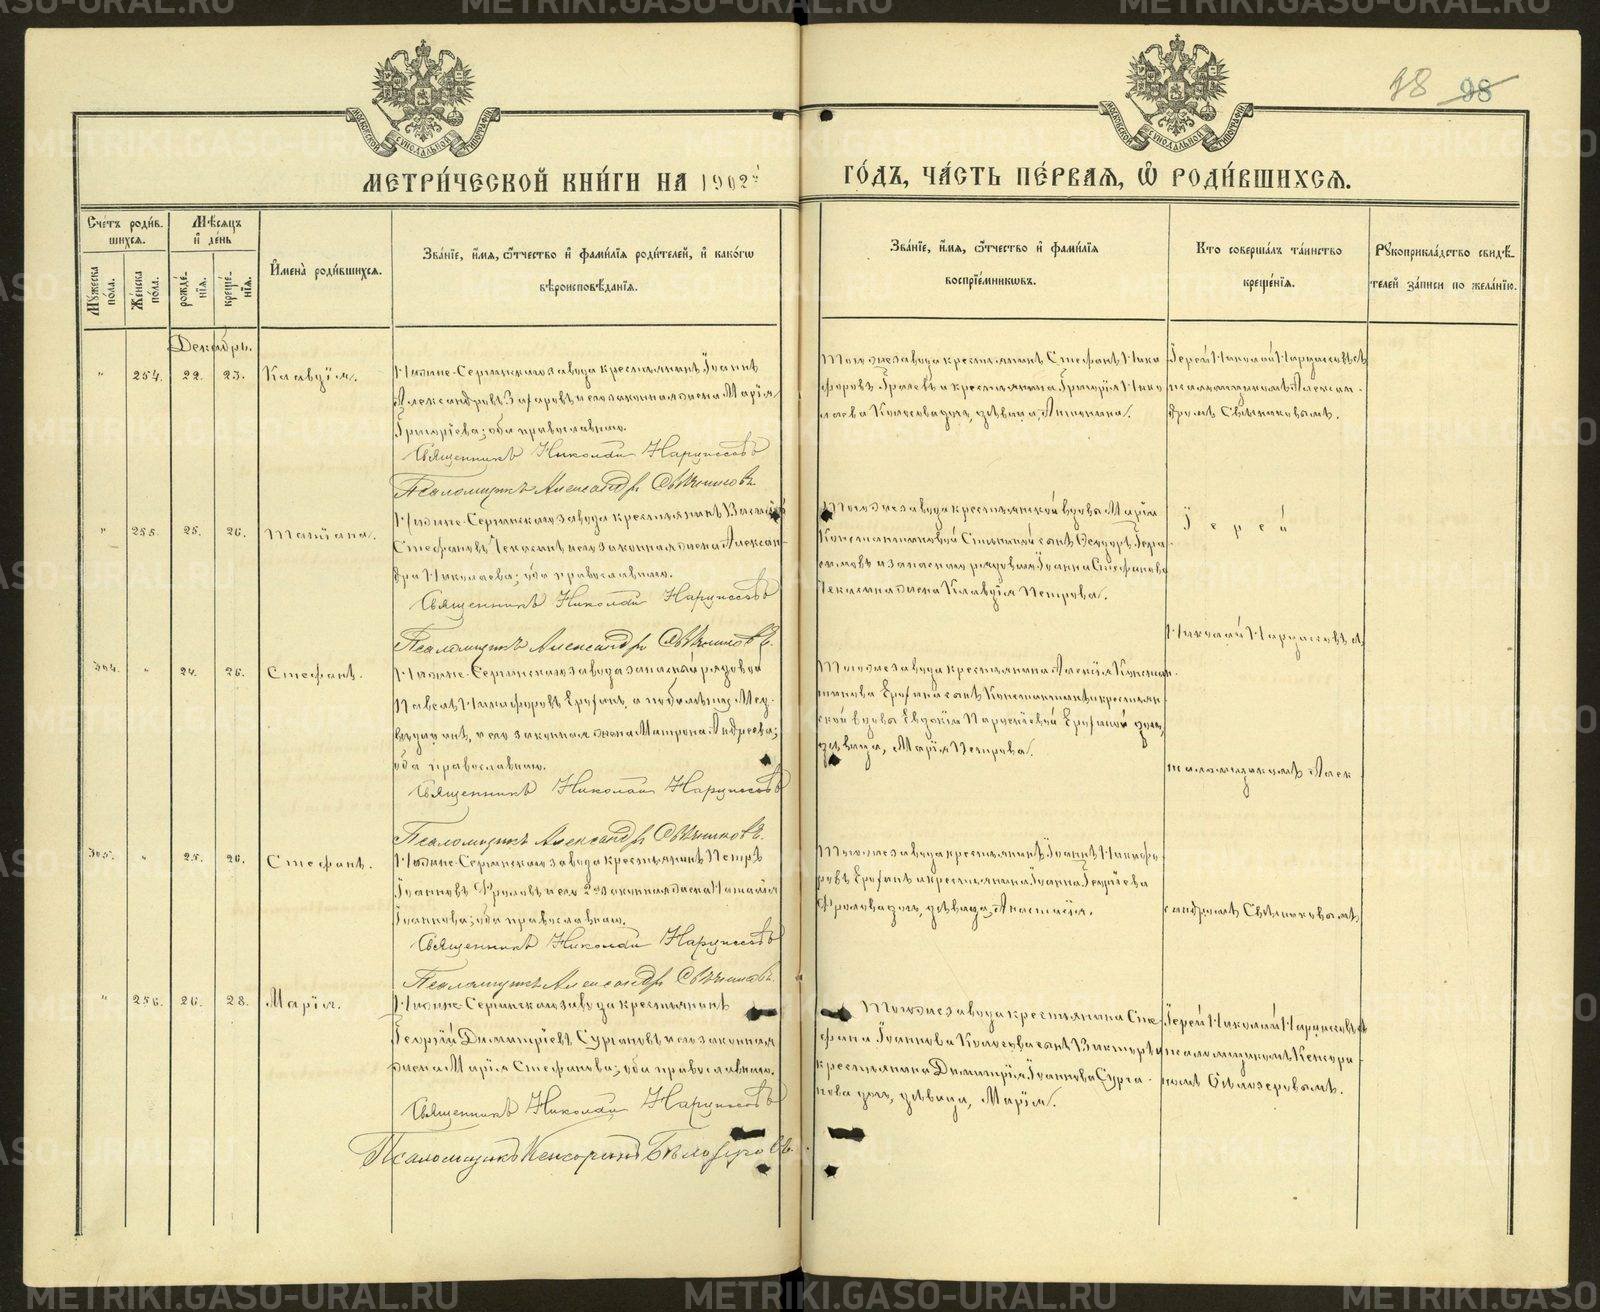 98 98
МОСКОВСКОЙ СѴНОДАЛЬНОЙ ТИПОГРАФІИ
МОСКОВСКОЙ СѴНОДАЛЬНОЙ ТИПОГРАФІИ
МЕТРИ́ЧЕСКОЙ КНИ́ГИ НА 1902й ГО́ДЪ, ЧА́СТЬ ПЕ́РВАѦ, Ѽ РОДИ́ВШИХСѦ.
Сче́тъ роди́в-
шихся.
Мꙋжеска по́ла.
Же́нска по́ла.
Мѣ́сяцъ
и҆ де́нь
рожде́-
нїя.
креще́-
нїя.
И҆мена̀ роди́вшихся.
Зва́нїе, и҆́мя, ѻ҆́тчество и҆ фами́лїя роди́телей, и҆ како́гѡ
вѣроисповѣ́данїя.
Зва́нїе, и҆́мя, ѻ҆́тчество и҆ фами́лїя
воспрїе́мникѡвъ.
Кто̀ соверша́лъ та́инство
креще́нїя.
Рꙋкоприкла́дство свидѣ́-
телей за́писи по жела́нїю.
Декабрь.
" 254. 22. 23. Клавдія.
Нижне-Сергинскаго завода крестьянинъ Іоаннъ
Александровъ Захаровъ и его законная жена Марія
Григоріева; оба православные.
Священникъ Николай Нарциссовъ
Псаломщикъ Александръ Свѣчниковъ
Того же завода крестьянинъ Стефанъ Ники-
форовъ и крестьянина Григорія Нико-
лаева дочь, дѣвица, Антонина.
Іерей Николай Нарциссовъ съ
псаломщикомъ Алексан-
дромъ Свѣчниковымъ.
" 255. 25. 26. Татіана.
Нижне-Сергинскаго завода крестьянинъ Василій
Стефановъ Чекасинъ и его законная жена Алексан-
дра Николаева; оба православные.
Священникъ Николай Нарциссовъ
Псаломщикъ Александръ Свѣчниковъ
Того же завода крестьянской вдовы Маріи
Константиновой сынъ Ѳеодоръ Гера-
симовъ и запаснаго рядоваго Іоанна Стефанова
Чекасина жена Клавдія Петрова.
Іерей
Николай Нарциссовъ съ
304. " 24. 26. Стефанъ.
Нижне-Сергинскаго завода запасный рядовой
Павелъ Никифоровъ Ерофинъ, а
и его законная жена Матрона Андреева;
оба православные.
Священникъ Николай Нарциссовъ
Псаломщикъ Александръ Свѣчниковъ
Того же завода крестьянина Алексія Констан-
тинова Ерофина сынъ Константинъ и крестьян-
ской вдовы Евдокіи Ерофиной дочь,
дѣвица, Марія Петрова.
псаломщикомъ Алек-
305. " 25. 26. Стефанъ.
Нижне-Сергинскаго завода крестьянинъ Петръ
Іоанновъ Фроловъ и его 2я законная жена Наталія
Іоаннова; оба православные.
Священникъ Николай Нарциссовъ
Псаломщикъ Александръ Свѣчниковъ
Того же завода крестьянинъ Іоаннъ Никифо-
ровъ Ерофинъ и крестьянина Іоанна Георгіева
Фролова дочь, дѣвица, Анастасія.
сандромъ Свѣчниковымъ
" 256. 26. 28. Марія.
Нижне-Сергинскаго завода крестьянинъ
Георгій Димитріевъ Сургановъ и его законная
жена Марія Стефанова; оба православные.
Священникъ Николай Нарциссовъ
Псаломщикъ Кенсоринъ Бѣлозеровъ
Того же завода крестьянина Сте-
фана Іоаннова сынъ Викторъ и
крестьянина Димитрія Іоаннова Сурга-
нова дочь, дѣвица, Марія.
Іерей Николай Нарциссовъ съ
псаломщикомъ Кенсори-
номъ Бѣлозеровымъ.
METRIKI.GASO-URAL.RU